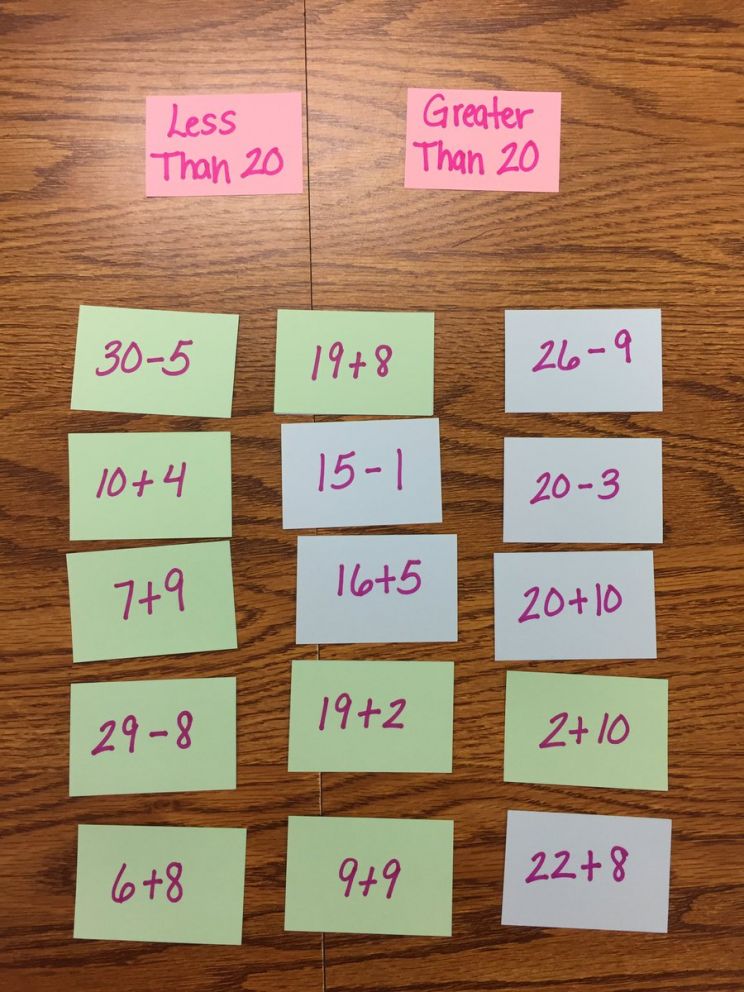 Less
Than 20
Greater
Than 20
30-5
19+8
26-9
10+4
15-1
20-3
7+9
16+5
20+10
29-8
19+2
2+10
6+8
9+9
22+8